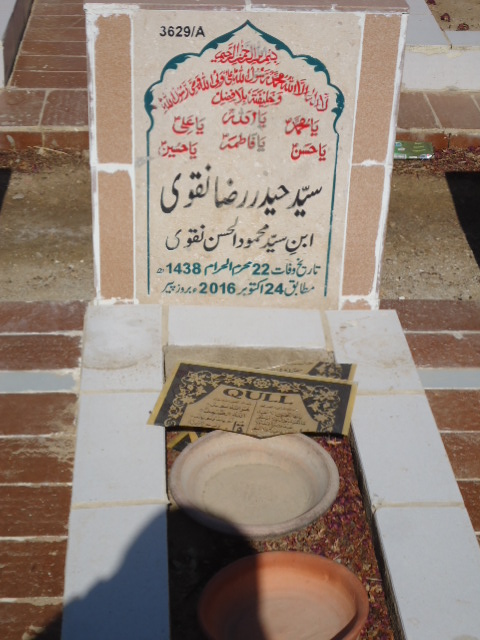 3629/A
بسم اللہ الرحمن الرحیم
لا الہ الا اللہ محمد رسول اللہ علی ولی اللہ وصی رسول اللہ
و خلیفتہ بلا فصل
یا اللہ
یا محمدؐ یا علیؑ
یا فاطمہؑ
یا حسنؑ یا حسینؑ
سیّد حیدر رضا نقوی
ابنِ سیّد محمود الحسن نقوی
تاریخ وفات 22 محرم الحرام 1438ھ
مطابق 24 اکتوبر 2016ء بروز پیر
QULL